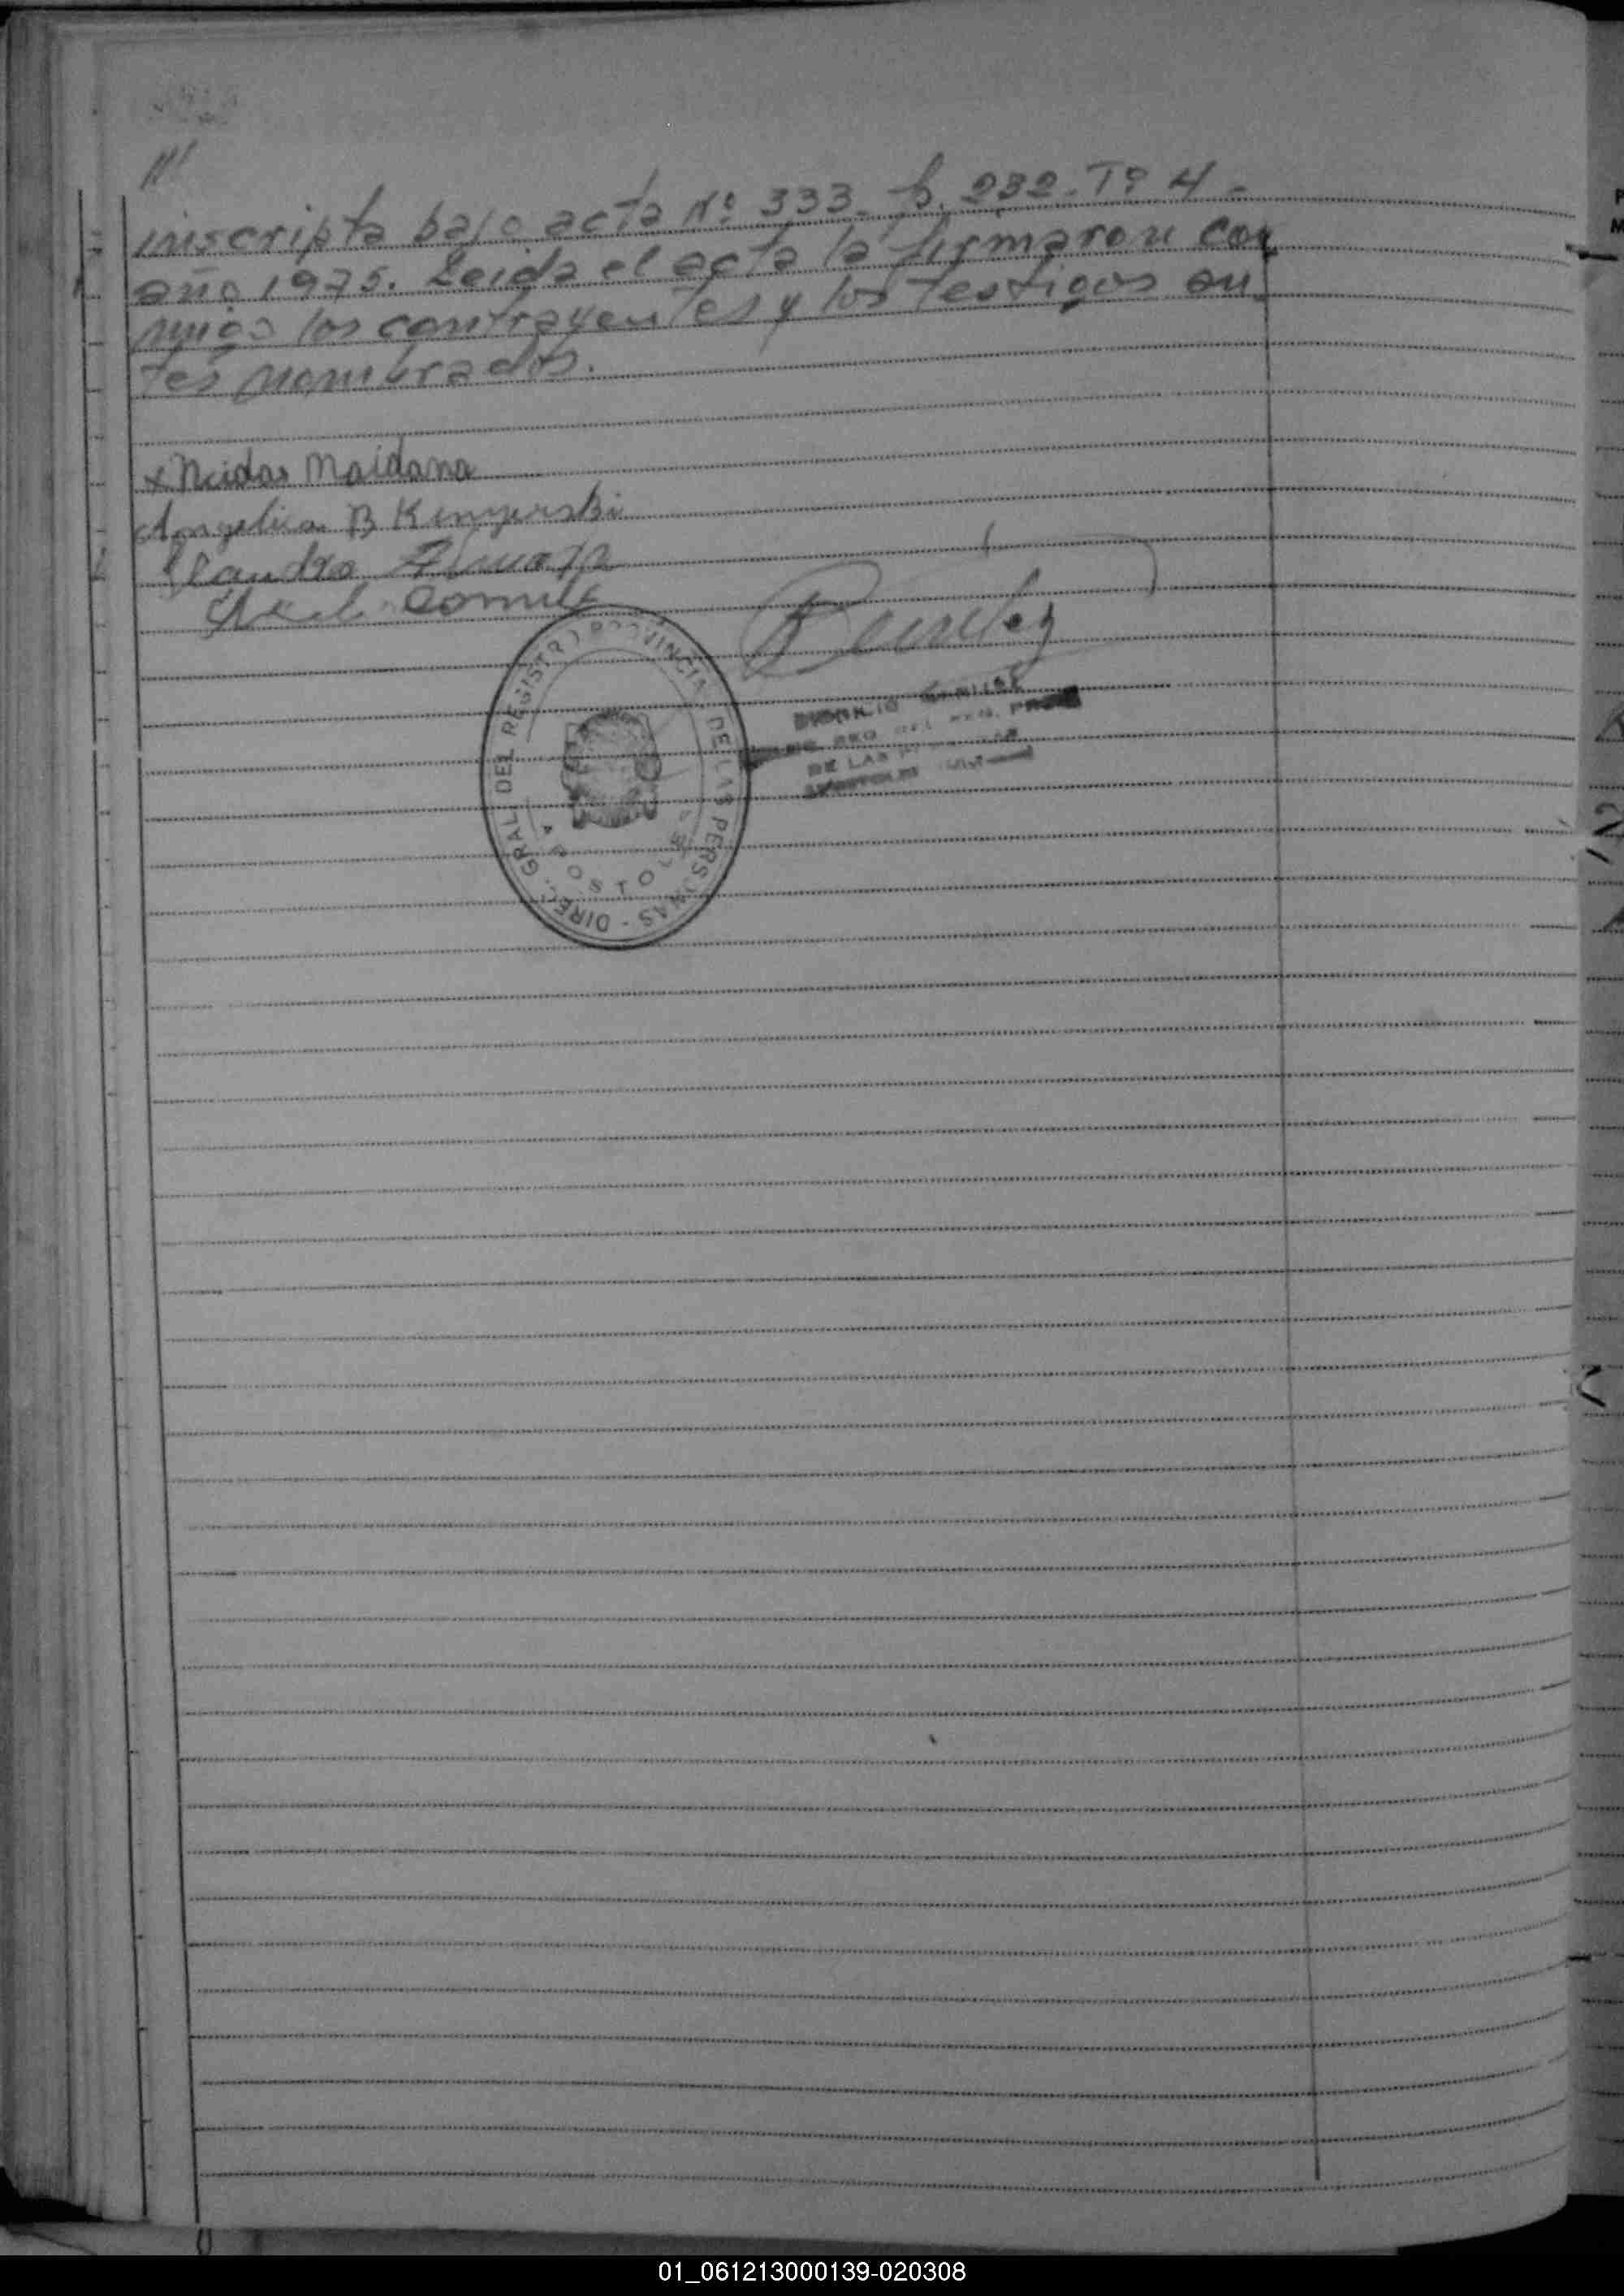 ///
inscripta bajo acta Nº 333. f. 232. Tº 4 -
año 1975. Leida el acta la firmaron con
migo los contrayentes y los testigos an
tes nombrados.
x Neidas Maidana
Angelica B
Sandro
DIREC. GRAL. DEL REGISTRO PROVINCIAL DE LAS PERSONAS -
APOSTOLES
REG. PROV.
DE LAS
01_061213000139-020308